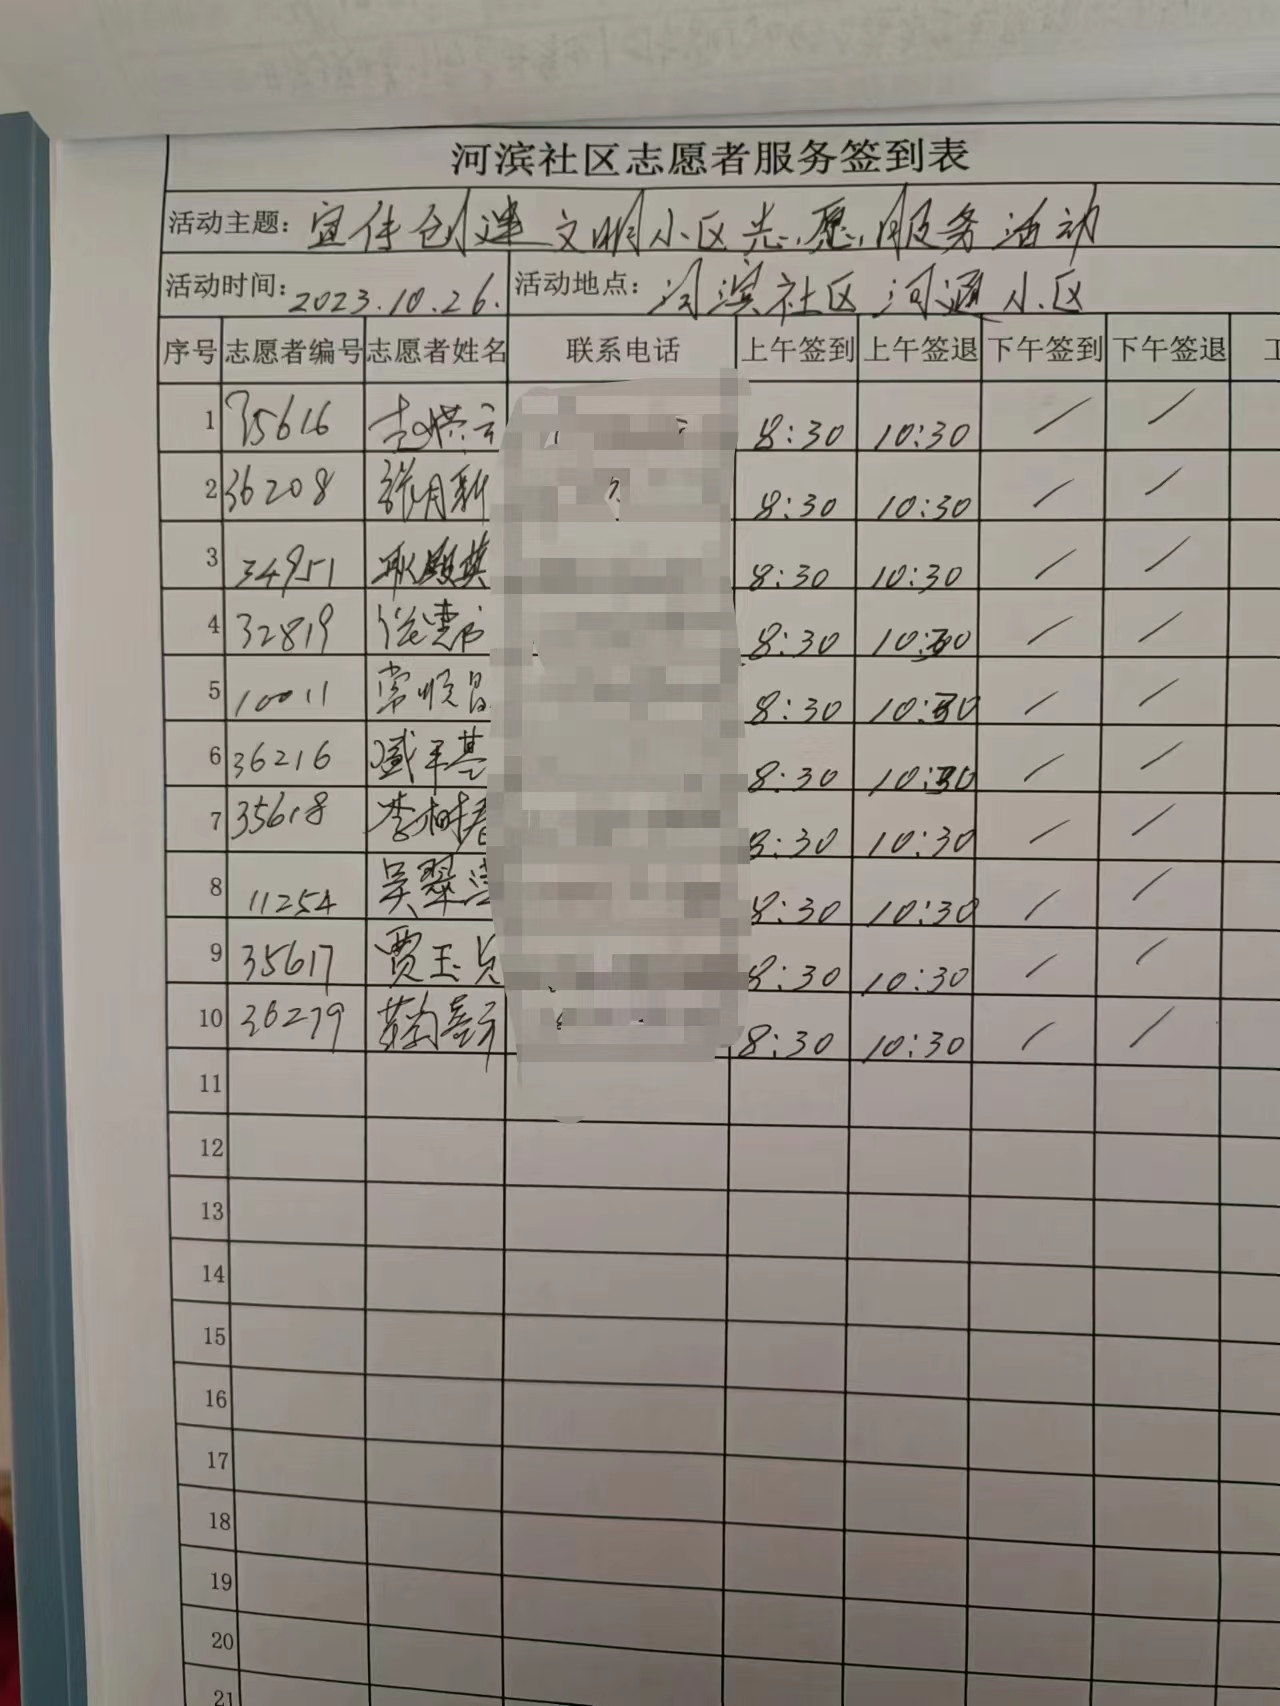 河滨社区志愿者服务签到表
活动主题：宣传创建文明小区志愿服务活动
活动时间：2023.10.26. 活动地点：河滨社区河通小区
序号 志愿者编号 志愿者姓名 联系电话 上午签到 上午签退 下午签到 下午签退
1 35616 8:30 10:30 / /
2 36208 张月新 8:30 10:30 / /
3 34951 8:30 10:30 / /
4 32819 8:30 10:30 / /
5 10011 常顺昌 8:30 10:30 / /
6 36216 臧平基 8:30 10:30 / /
7 35618 李树春 8:30 10:30 / /
8 11254 吴翠 8:30 10:30 / /
9 35617 贾玉贞 8:30 10:30 / /
10 36279 8:30 10:30 / /
11
12
13
14
15
16
17
18
19
20
21